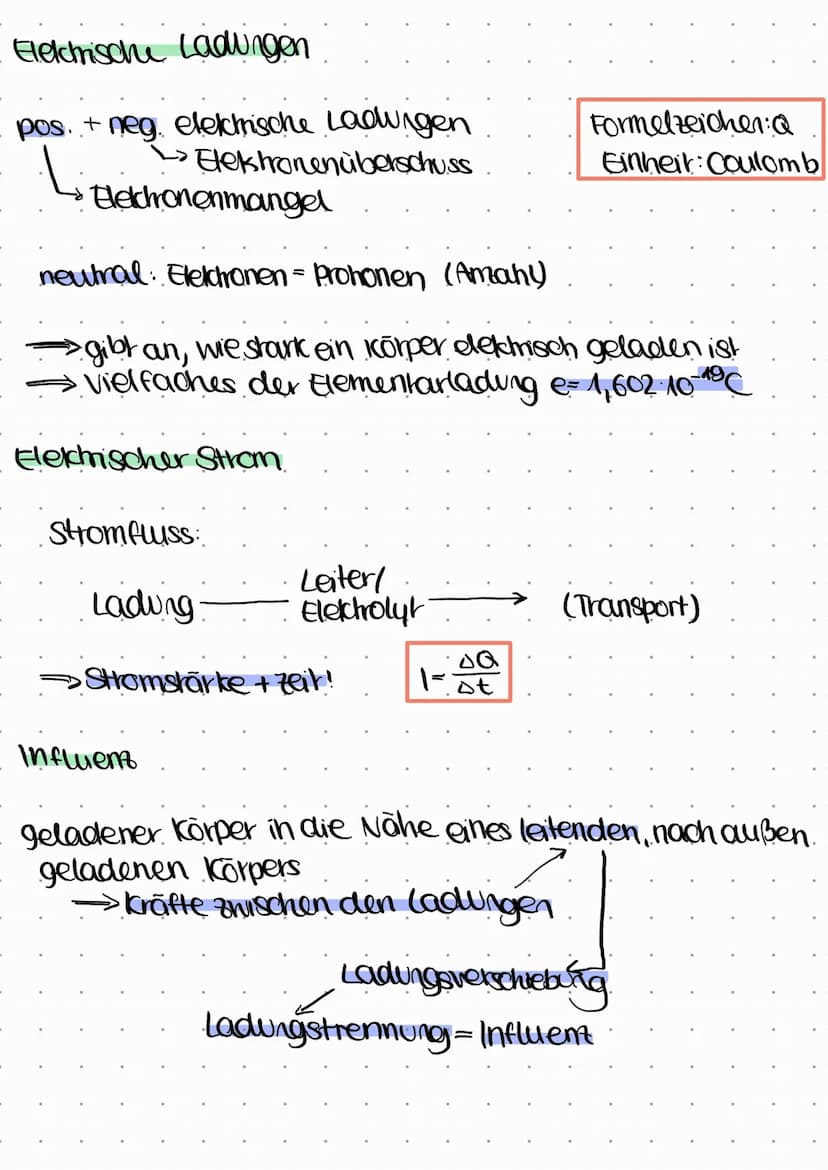 Elektrische Ladungen
pos. + neg. elektrische Ladungen
↳ Elektronenüberschuss
↳ Elektronenmangel
Formelzeichen: Q
Einheit: Coulomb
neutral: Elektronen = Protonen (Anzahl)
⇒ gibt an, wie stark ein Körper elektrisch geladen ist
⇒ Vielfaches der Elementarladung e = 1,602·10⁻¹⁹C
Elektrischer Strom
Stromfluss:
Ladung — Leiter/Elektrolyt → (Transport)
⇒ Stromstärke + Zeit!
I = ΔQ/Δt
Influenz
geladener Körper in die Nähe eines leitenden, nach außen
geladenen Körpers
⇒ Kräfte zwischen den Ladungen
Ladungsverschiebung
Ladungstrennung = Influenz